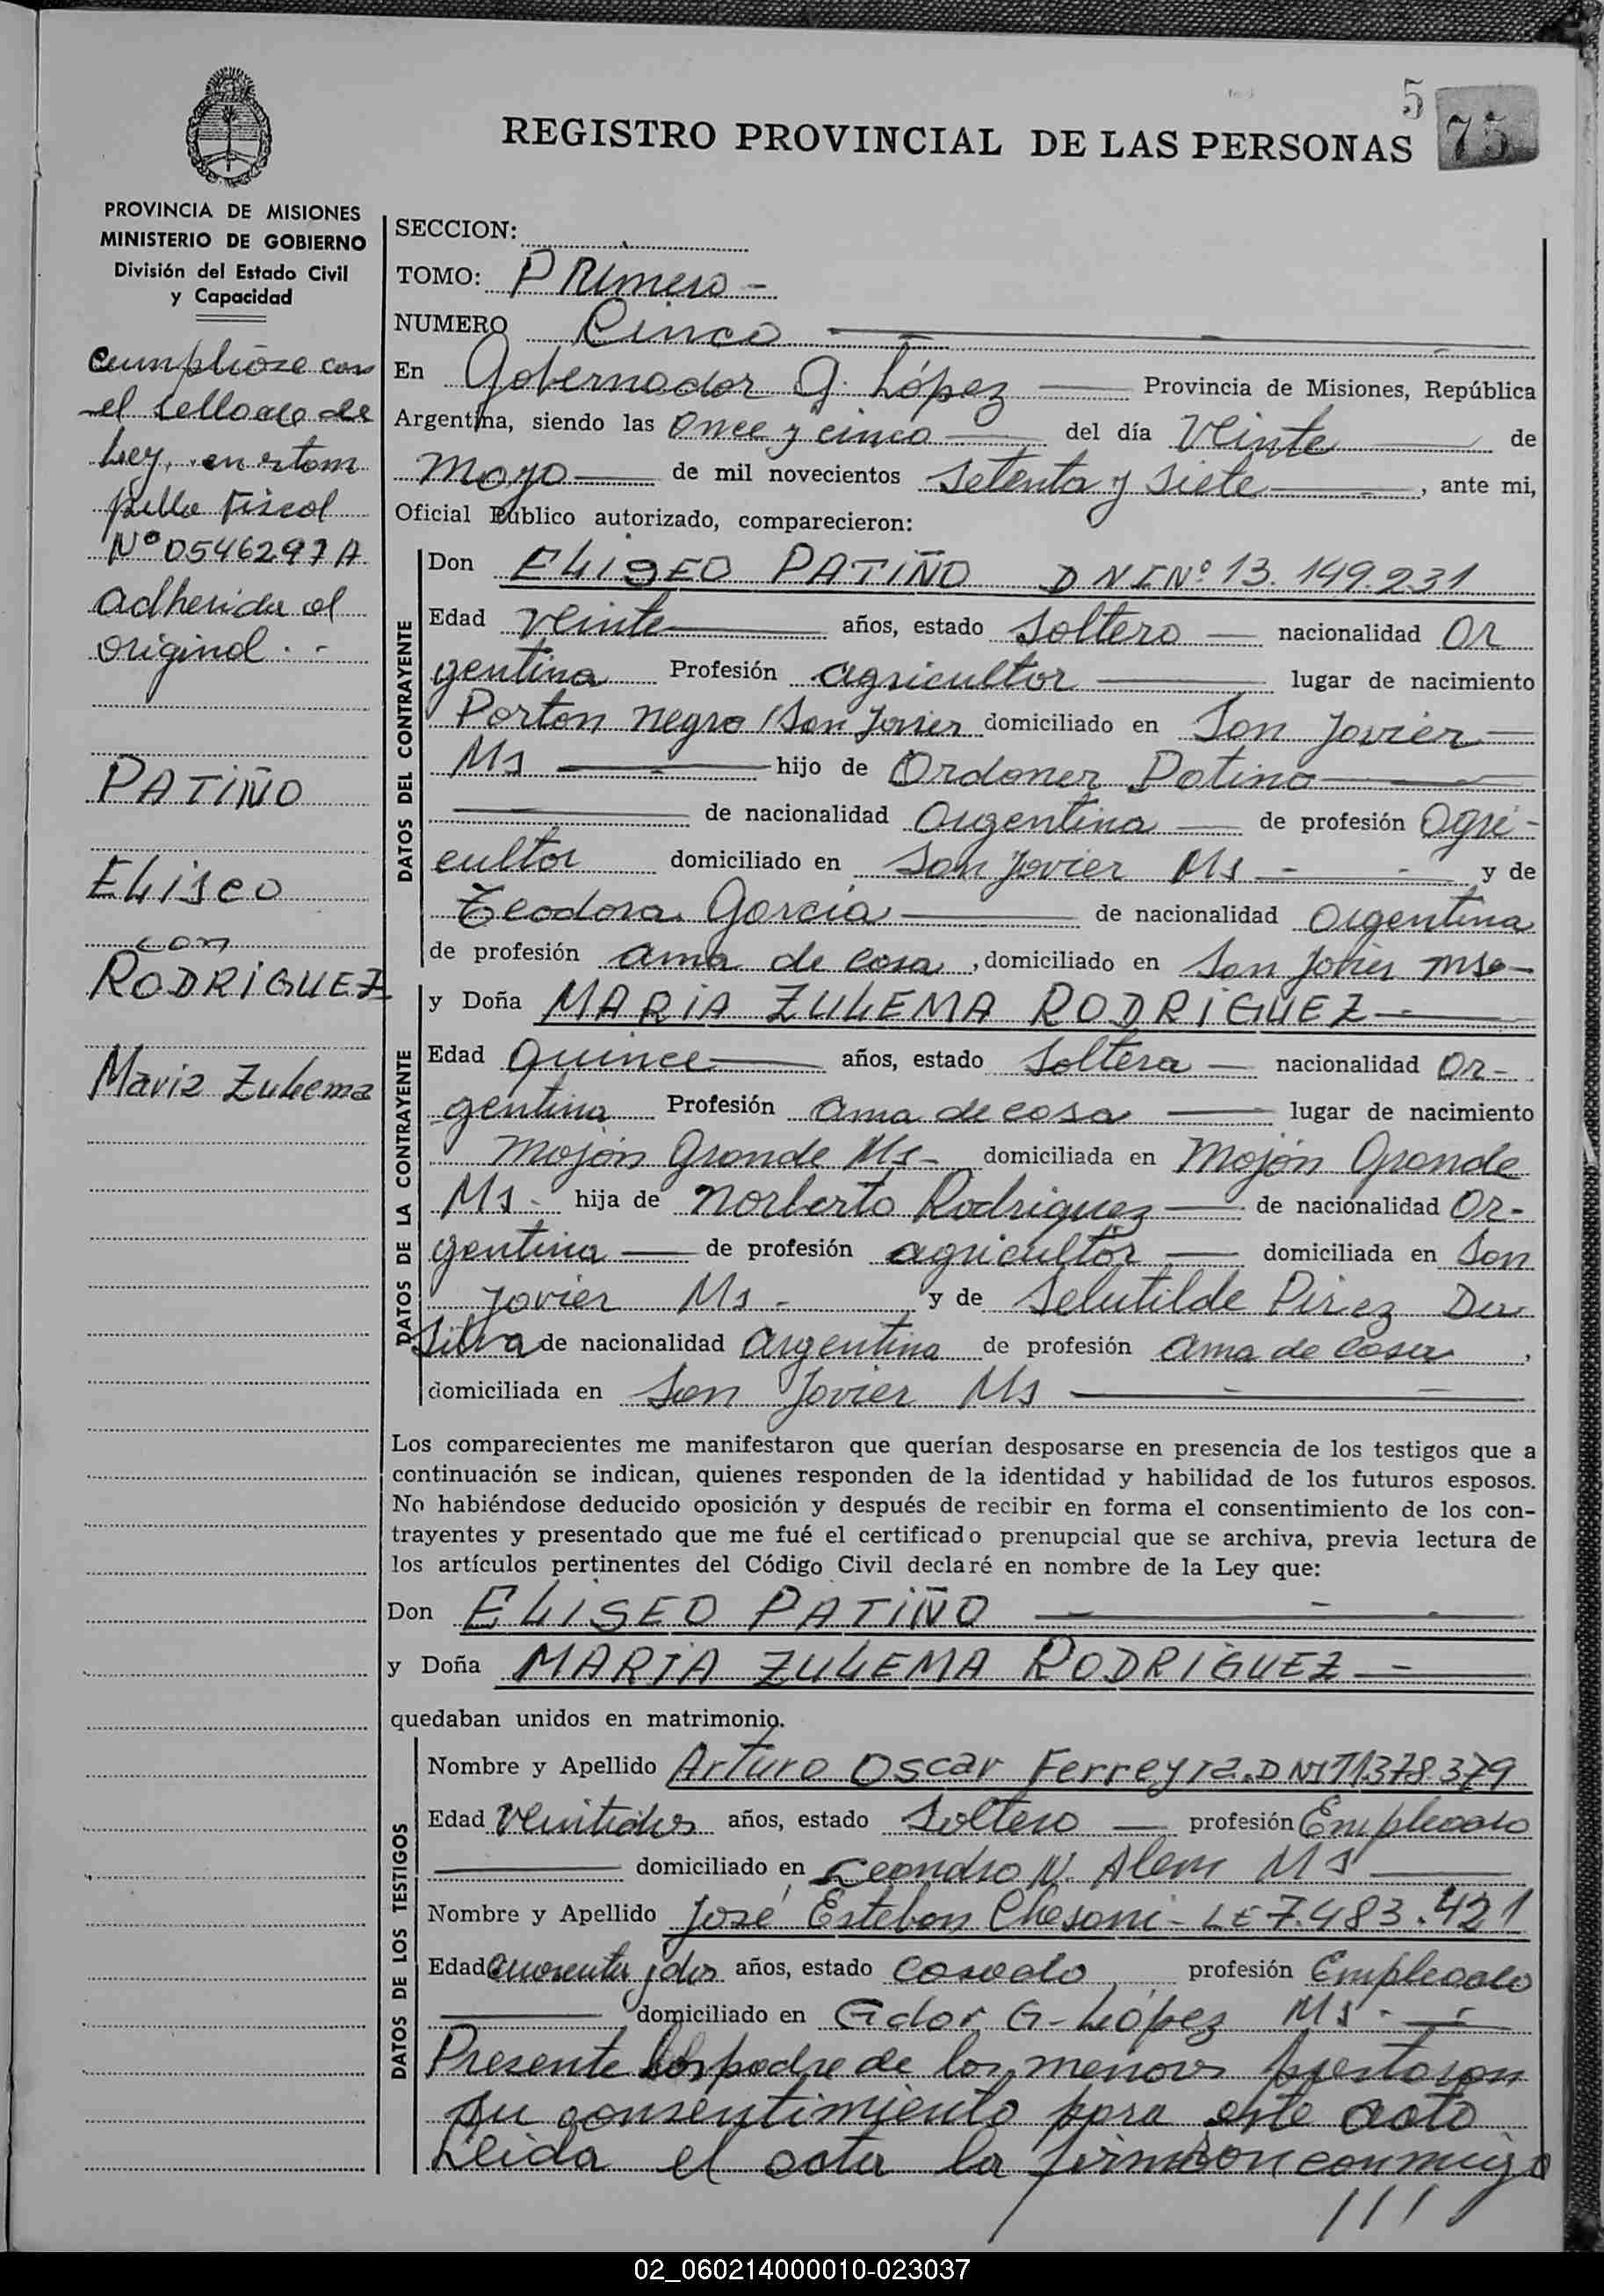 5
75
REGISTRO PROVINCIAL DE LAS PERSONAS
PROVINCIA DE MISIONES
MINISTERIO DE GOBIERNO
División del Estado Civil
y Capacidad
Cumplióse con
el sellado de
Ley, en estam
pilla Fiscal
Nº 0546297 A
adherida al
original . -
PATIÑO
Eliseo
con
RODRIGUEZ
Maria Zulema
SECCION:
TOMO: Primero -
NUMERO Cinco
En Gobernador G. López Provincia de Misiones, República
Argentina, siendo las Once y cinco del día Veinte de
Mayo de mil novecientos Setenta y Siete , ante mi,
Oficial Público autorizado, comparecieron:
DATOS DEL CONTRAYENTE
Don ELISEO PATIÑO DNI Nº 13.149.231
Edad Veinte años, estado Soltero nacionalidad Ar
gentina Profesión agricultor lugar de nacimiento
Porton Negro / San Javier domiciliado en San Javier
Ms hijo de Ordoner Patino
de nacionalidad Argentina de profesión Agri-
cultor domiciliado en San Javier Ms - y de
Teodora García de nacionalidad Argentina
de profesión ama de casa , domiciliado en San Javier Ms
DATOS DE LA CONTRAYENTE
y Doña MARIA ZULEMA RODRIGUEZ
Edad Quince años, estado Soltera nacionalidad Ar-
gentina Profesión ama de casa lugar de nacimiento
Mojón Grande Ms - domiciliada en Mojón Grande
Ms - hija de Norberto Rodriguez de nacionalidad Ar-
gentina de profesión agricultor domiciliada en San
Javier Ms - y de Selutilde Pirez Da
Silva de nacionalidad Argentina de profesión ama de casa ,
domiciliada en San Javier Ms
Los comparecientes me manifestaron que querían desposarse en presencia de los testigos que a
continuación se indican, quienes responden de la identidad y habilidad de los futuros esposos.
No habiéndose deducido oposición y después de recibir en forma el consentimiento de los con-
trayentes y presentado que me fué el certificado prenupcial que se archiva, previa lectura de
los artículos pertinentes del Código Civil declaré en nombre de la Ley que:
Don ELISEO PATIÑO
y Doña MARIA ZULEMA RODRIGUEZ
quedaban unidos en matrimonio.
DATOS DE LOS TESTIGOS
Nombre y Apellido Arturo Oscar Ferreyra. DNI 11.378.379
Edad Veintidos años, estado Soltero profesión Empleado
domiciliado en Leandro N. Alem Ms
Nombre y Apellido José Esteban Chesani - LE 7.483.421
Edad Cuarenta y dos años, estado Casado profesión Empleado
domiciliado en Gdor G. López Ms -
Presente los padre de los menores prestaron
su consentimiento para este acto
Leida el acta la firmaron conmigo
///
02_060214000010-023037